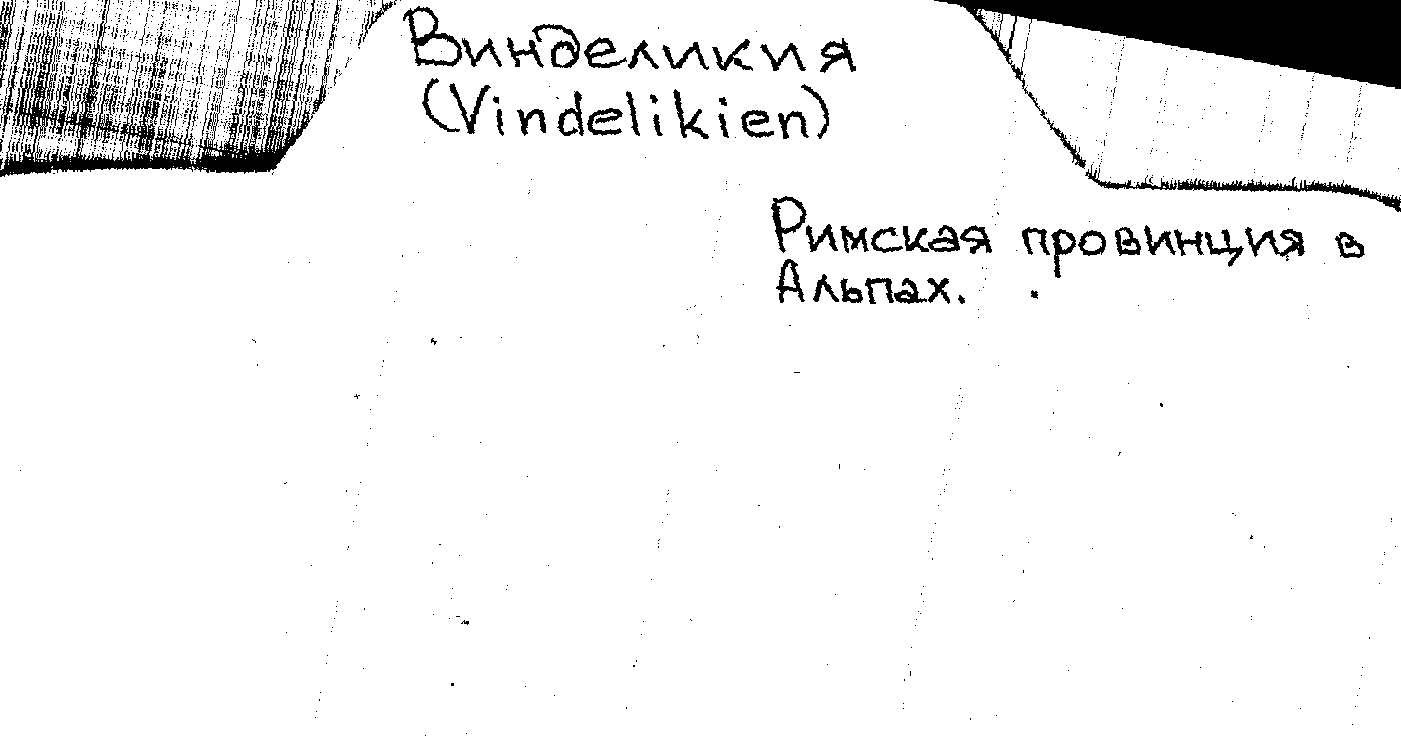 Винделикия
(Vindelikien)
Римская провинция в
Альпах.